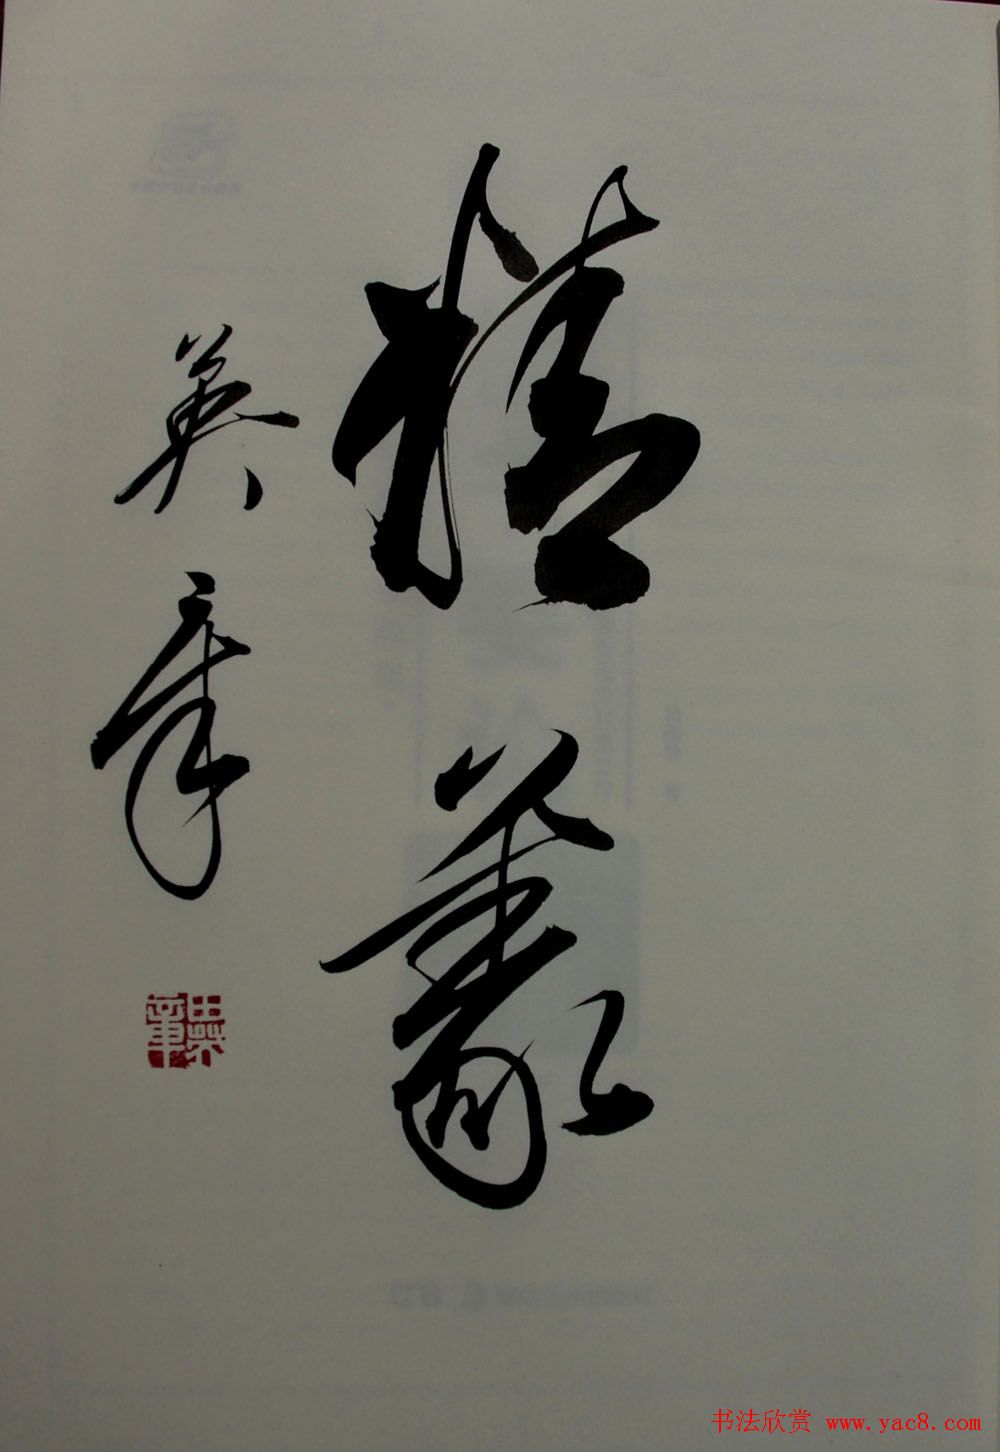 精
英章
田英章
书法欣赏 www.yac8.com